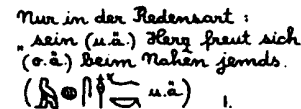 Nur in der Redensart :
„ sein (u.ä.) Herz freut sich
(o.ä.) beim Nahen jemds.
( u.ä) 1.